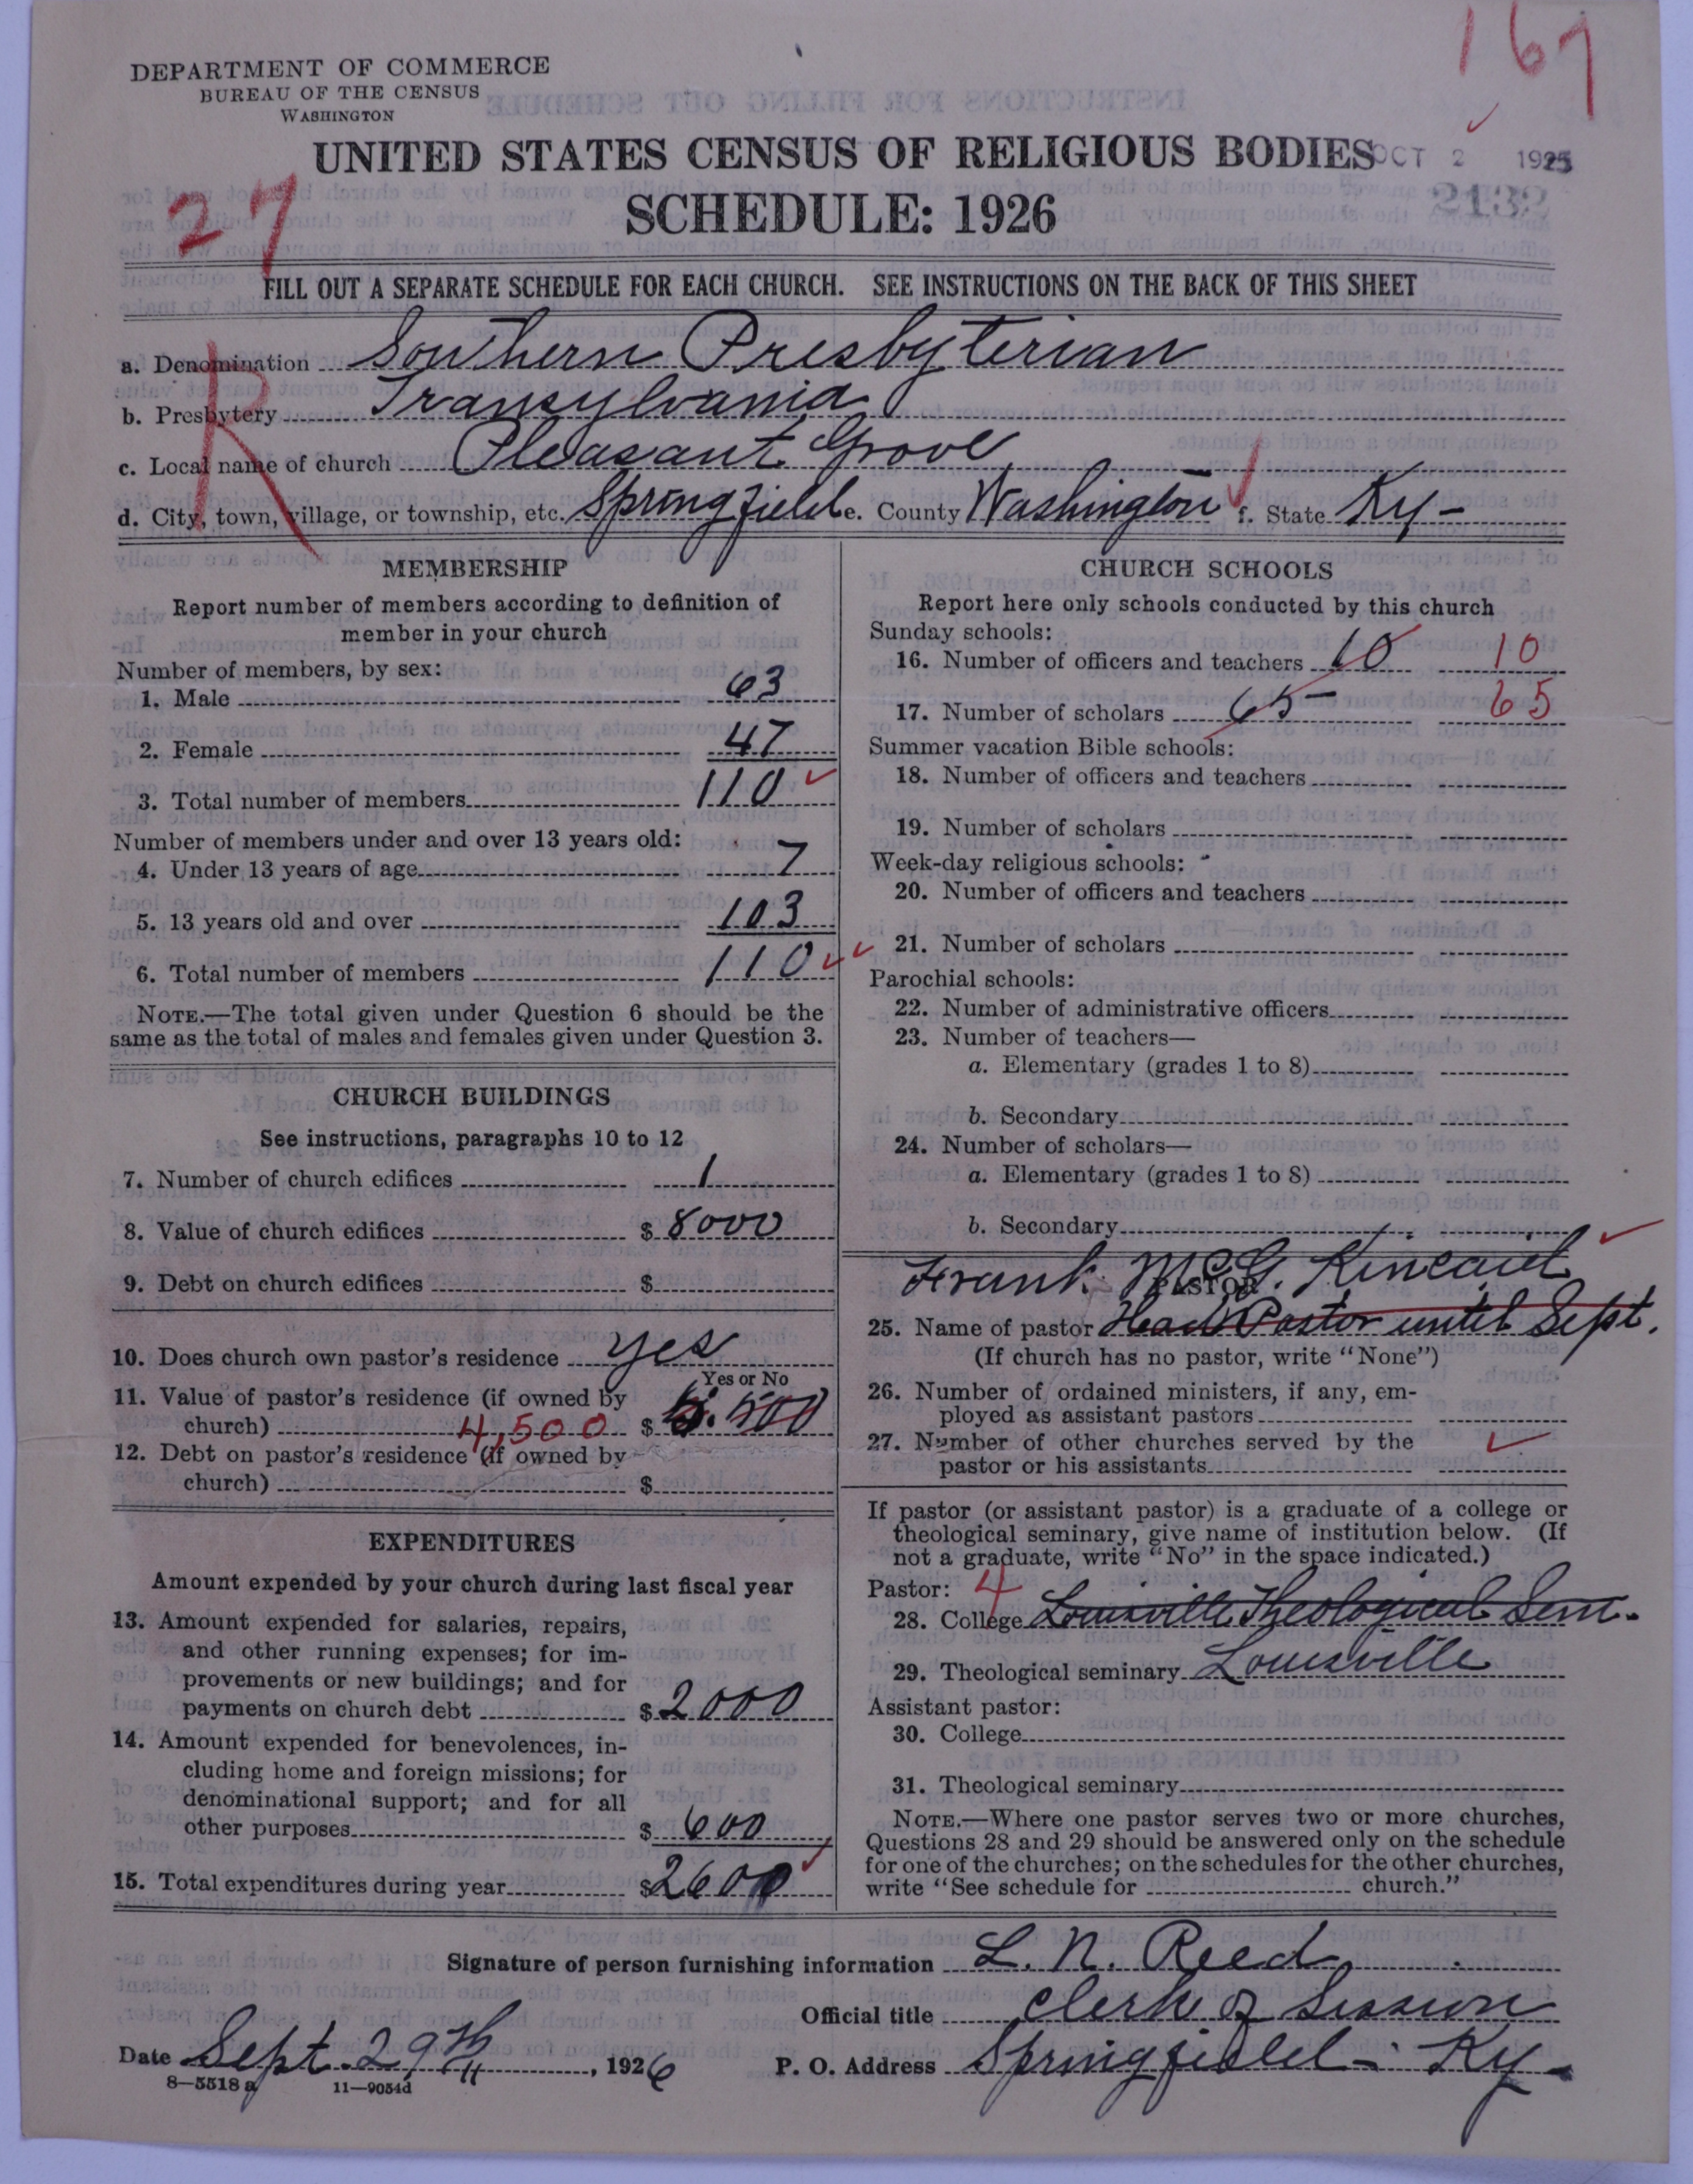 167
DEPARTMENT OF COMMERCE
BUREAU OF THE CENSUS
WASHINGTON
UNITED STATES CENSUS OF RELIGIOUS BODIES
OCT 2 1925
SCHEDULE: 1926
2132
27
FILL OUT A SEPARATE SCHEDULE FOR EACH CHURCH. SEE INSTRUCTIONS ON THE BACK OF THIS SHEET
R
a. Denomination Southern Presbyterian
b. Presbytery Transylvania
c. Local name of church Pleasant Grove
d. City, town, village, or township, etc. Springfield e. County Washington f. State Ky-
MEMBERSHIP
Report number of members according to definition of
member in your church
Number of members, by sex:
1. Male 63
2. Female 47
3. Total number of members 110
Number of members under and over 13 years old:
4. Under 13 years of age 7
5. 13 years old and over 103
6. Total number of members 110
NOTE.—The total given under Question 6 should be the
same as the total of males and females given under Question 3.
CHURCH BUILDINGS
See instructions, paragraphs 10 to 12
7. Number of church edifices 1
8. Value of church edifices $ 8000
9. Debt on church edifices $
10. Does church own pastor's residence yes
Yes or No
11. Value of pastor's residence (if owned by
church) 4,500 $
12. Debt on pastor's residence (if owned by
church) $
EXPENDITURES
Amount expended by your church during last fiscal year
13. Amount expended for salaries, repairs,
and other running expenses; for im-
provements or new buildings; and for
payments on church debt $ 2000
14. Amount expended for benevolences, in-
cluding home and foreign missions; for
denominational support; and for all
other purposes $ 600
15. Total expenditures during year $ 2600
CHURCH SCHOOLS
Report here only schools conducted by this church
Sunday schools:
16. Number of officers and teachers 10 10
17. Number of scholars 65 65
Summer vacation Bible schools:
18. Number of officers and teachers
19. Number of scholars
Week-day religious schools:
20. Number of officers and teachers
21. Number of scholars
Parochial schools:
22. Number of administrative officers
23. Number of teachers—
a. Elementary (grades 1 to 8)
b. Secondary
24. Number of scholars—
a. Elementary (grades 1 to 8)
b. Secondary
Frank McG. Kincaid
PASTOR
25. Name of pastor Had Pastor until Sept.
(If church has no pastor, write "None")
26. Number of ordained ministers, if any, em-
ployed as assistant pastors
27. Number of other churches served by the
pastor or his assistants
If pastor (or assistant pastor) is a graduate of a college or
theological seminary, give name of institution below. (If
not a graduate, write "No" in the space indicated.)
Pastor: 4
28. College Louisville Theological Sem.
29. Theological seminary Louisville
Assistant pastor:
30. College
31. Theological seminary
NOTE.—Where one pastor serves two or more churches,
Questions 28 and 29 should be answered only on the schedule
for one of the churches; on the schedules for the other churches,
write "See schedule for church."
Signature of person furnishing information L. N. Reed
Official title Clerk of Session
Date Sept. 29th, 1926 P. O. Address Springfield - Ky-
8—5518a 11—9054d